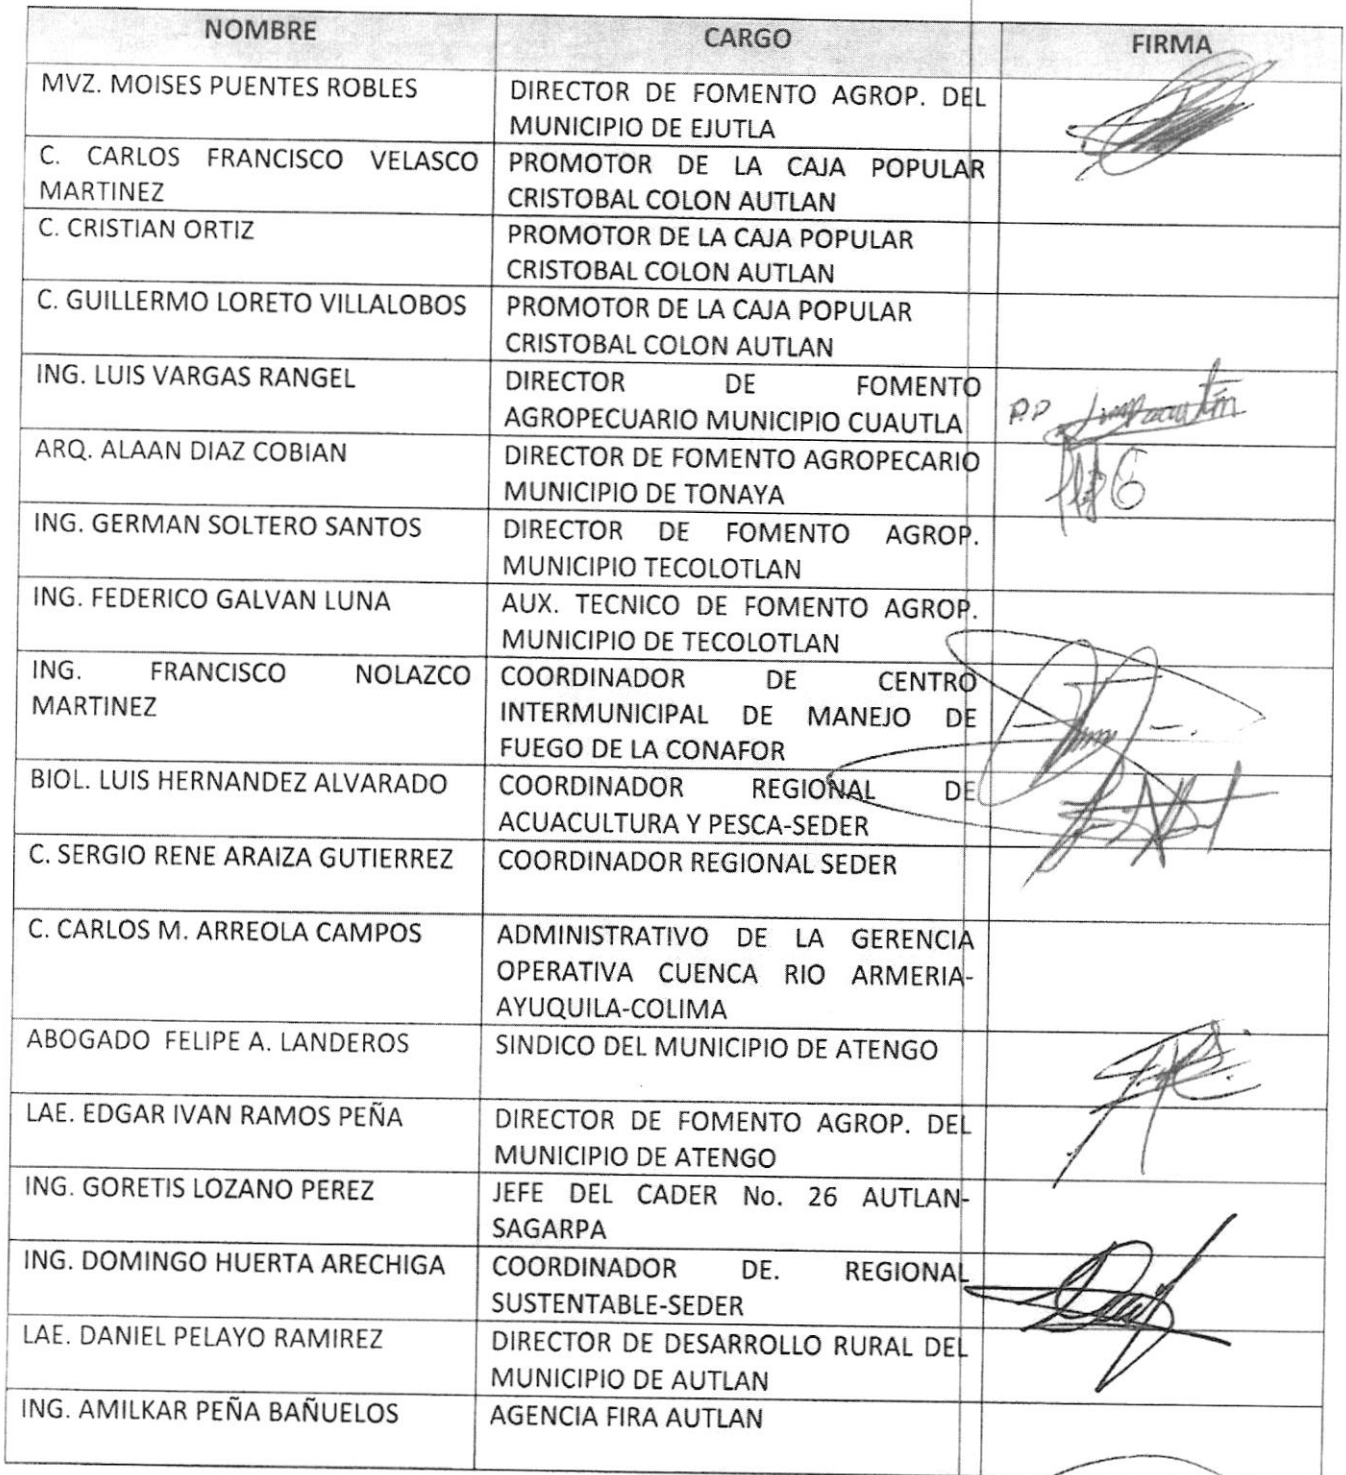 NOMBRE CARGO FIRMA
MVZ. MOISES PUENTES ROBLES DIRECTOR DE FOMENTO AGROP. DEL
MUNICIPIO DE EJUTLA
C. CARLOS FRANCISCO VELASCO PROMOTOR DE LA CAJA POPULAR
MARTINEZ CRISTOBAL COLON AUTLAN
C. CRISTIAN ORTIZ PROMOTOR DE LA CAJA POPULAR
CRISTOBAL COLON AUTLAN
C. GUILLERMO LORETO VILLALOBOS PROMOTOR DE LA CAJA POPULAR
CRISTOBAL COLON AUTLAN
ING. LUIS VARGAS RANGEL DIRECTOR DE FOMENTO
AGROPECUARIO MUNICIPIO CUAUTLA P.P
ARQ. ALAAN DIAZ COBIAN DIRECTOR DE FOMENTO AGROPECARIO
MUNICIPIO DE TONAYA
ING. GERMAN SOLTERO SANTOS DIRECTOR DE FOMENTO AGROP.
MUNICIPIO TECOLOTLAN
ING. FEDERICO GALVAN LUNA AUX. TECNICO DE FOMENTO AGROP.
MUNICIPIO DE TECOLOTLAN
ING. FRANCISCO NOLAZCO COORDINADOR DE CENTRO
MARTINEZ INTERMUNICIPAL DE MANEJO DE
FUEGO DE LA CONAFOR
BIOL. LUIS HERNANDEZ ALVARADO COORDINADOR REGIONAL DE
ACUACULTURA Y PESCA-SEDER
C. SERGIO RENE ARAIZA GUTIERREZ COORDINADOR REGIONAL SEDER
C. CARLOS M. ARREOLA CAMPOS ADMINISTRATIVO DE LA GERENCIA
OPERATIVA CUENCA RIO ARMERIA-
AYUQUILA-COLIMA
ABOGADO FELIPE A. LANDEROS SINDICO DEL MUNICIPIO DE ATENGO
LAE. EDGAR IVAN RAMOS PEÑA DIRECTOR DE FOMENTO AGROP. DEL
MUNICIPIO DE ATENGO
ING. GORETIS LOZANO PEREZ JEFE DEL CADER No. 26 AUTLAN-
SAGARPA
ING. DOMINGO HUERTA ARECHIGA COORDINADOR DE. REGIONAL
SUSTENTABLE-SEDER
LAE. DANIEL PELAYO RAMIREZ DIRECTOR DE DESARROLLO RURAL DEL
MUNICIPIO DE AUTLAN
ING. AMILKAR PEÑA BAÑUELOS AGENCIA FIRA AUTLAN